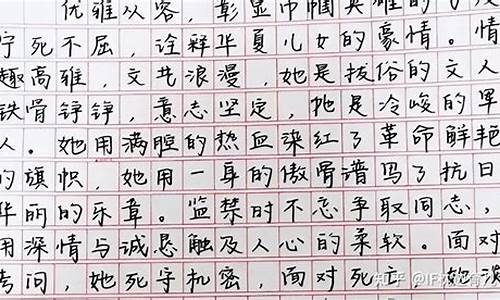 优雅从容,彰显巾帼英雄的
宁死不屈,诠释华夏儿女的豪情。情
趣高雅,文艺浪漫,她是拔俗的文人
铁骨铮铮,意志坚定,她是冷峻的军
人。她用满腔的热血染红了革命鲜艳
的旗帜,她用一身的傲骨谱写了抗日
华丽的乐章。监禁时不忘争取同志,
用深情与诚恳触及人心的柔软。面对
拷问,她死守机密,面对死
知乎 @IF